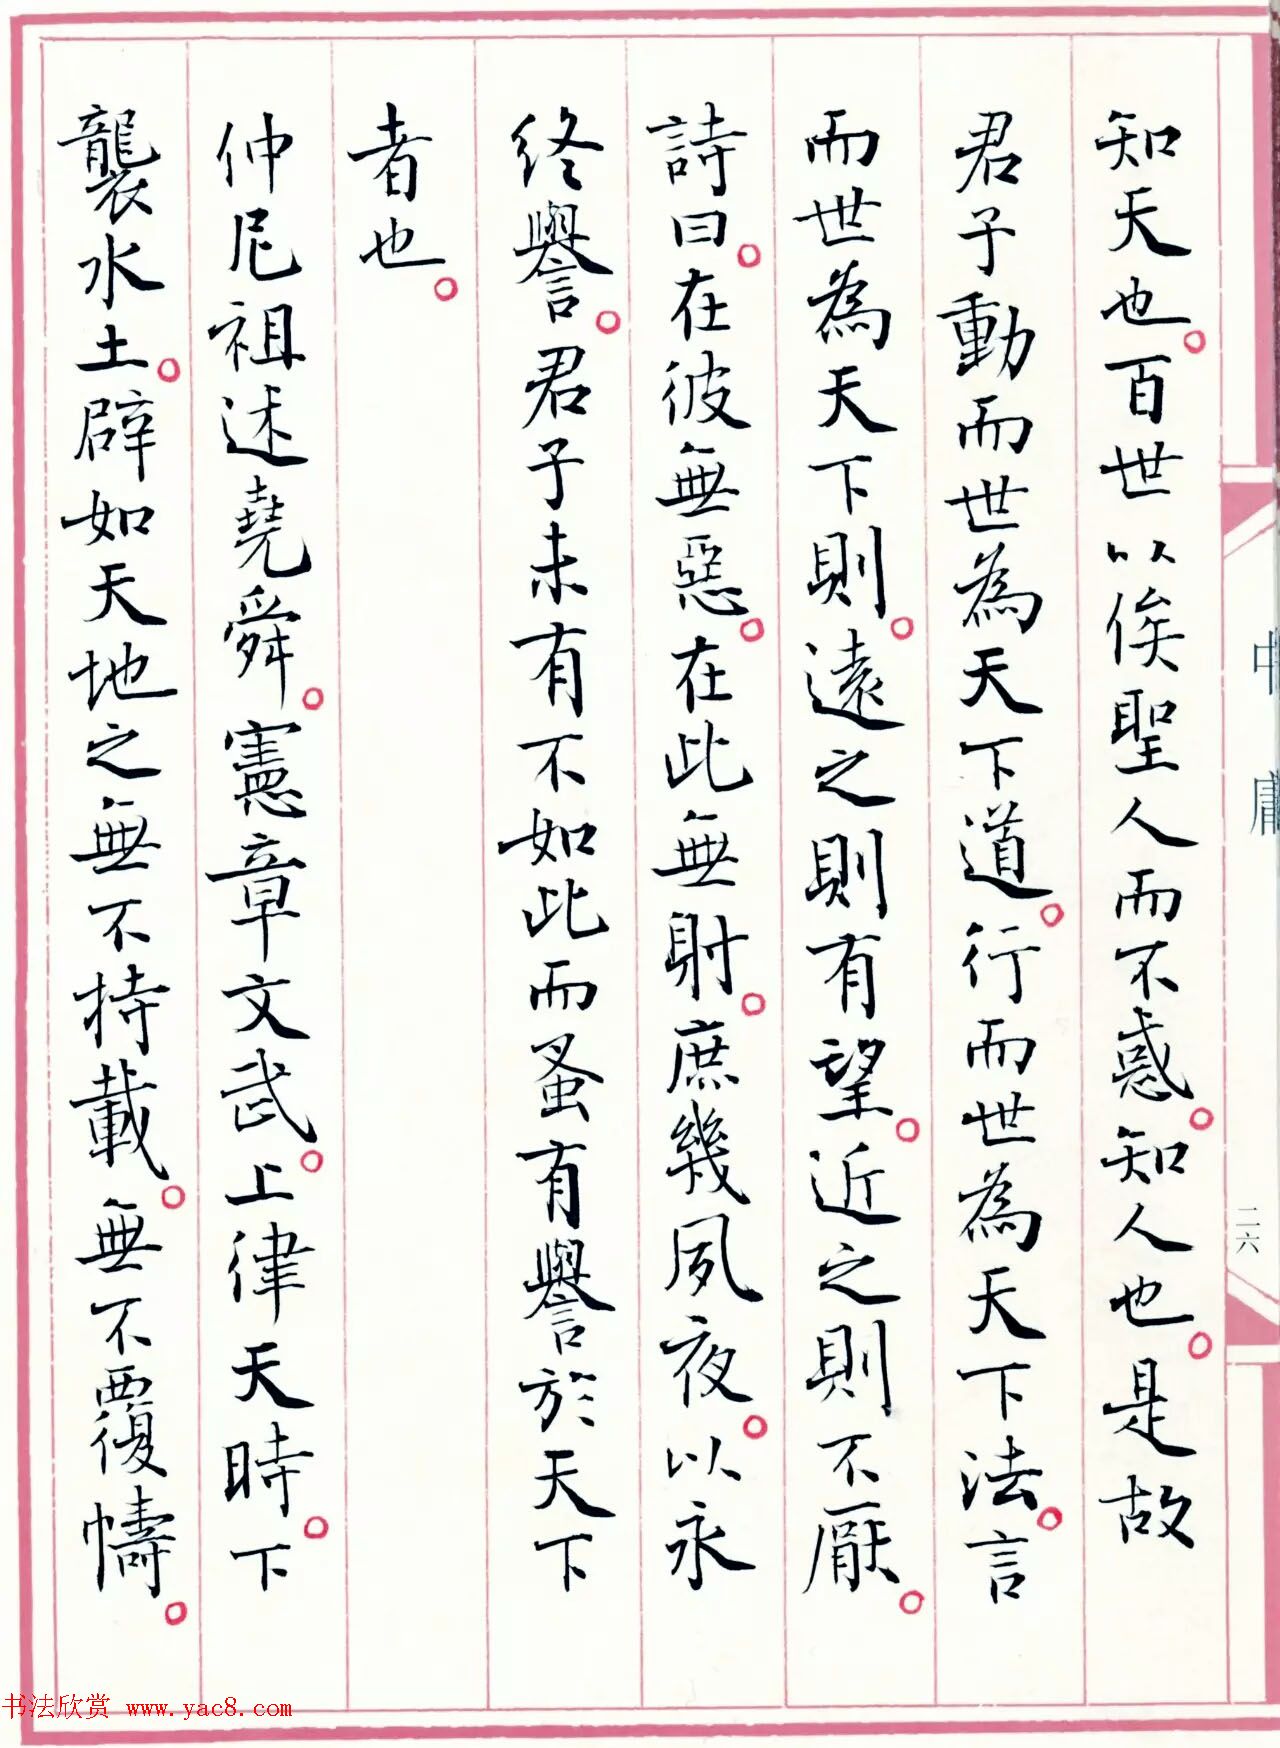 知天也。百世以俟聖人而不惑。知人也。是故
君子動而世為天下道。行而世為天下法。言
而世為天下則。遠之則有望。近之則不厭。
詩曰。在彼無惡。在此無射。庶幾夙夜。以永
終譽。君子未有不如此而蚤有譽於天下
者也。
仲尼祖述堯舜。憲章文武。上律天時。下
襲水土。辟如天地之無不持載。無不覆幬。
中庸
二六
书法欣赏 www.yac8.com